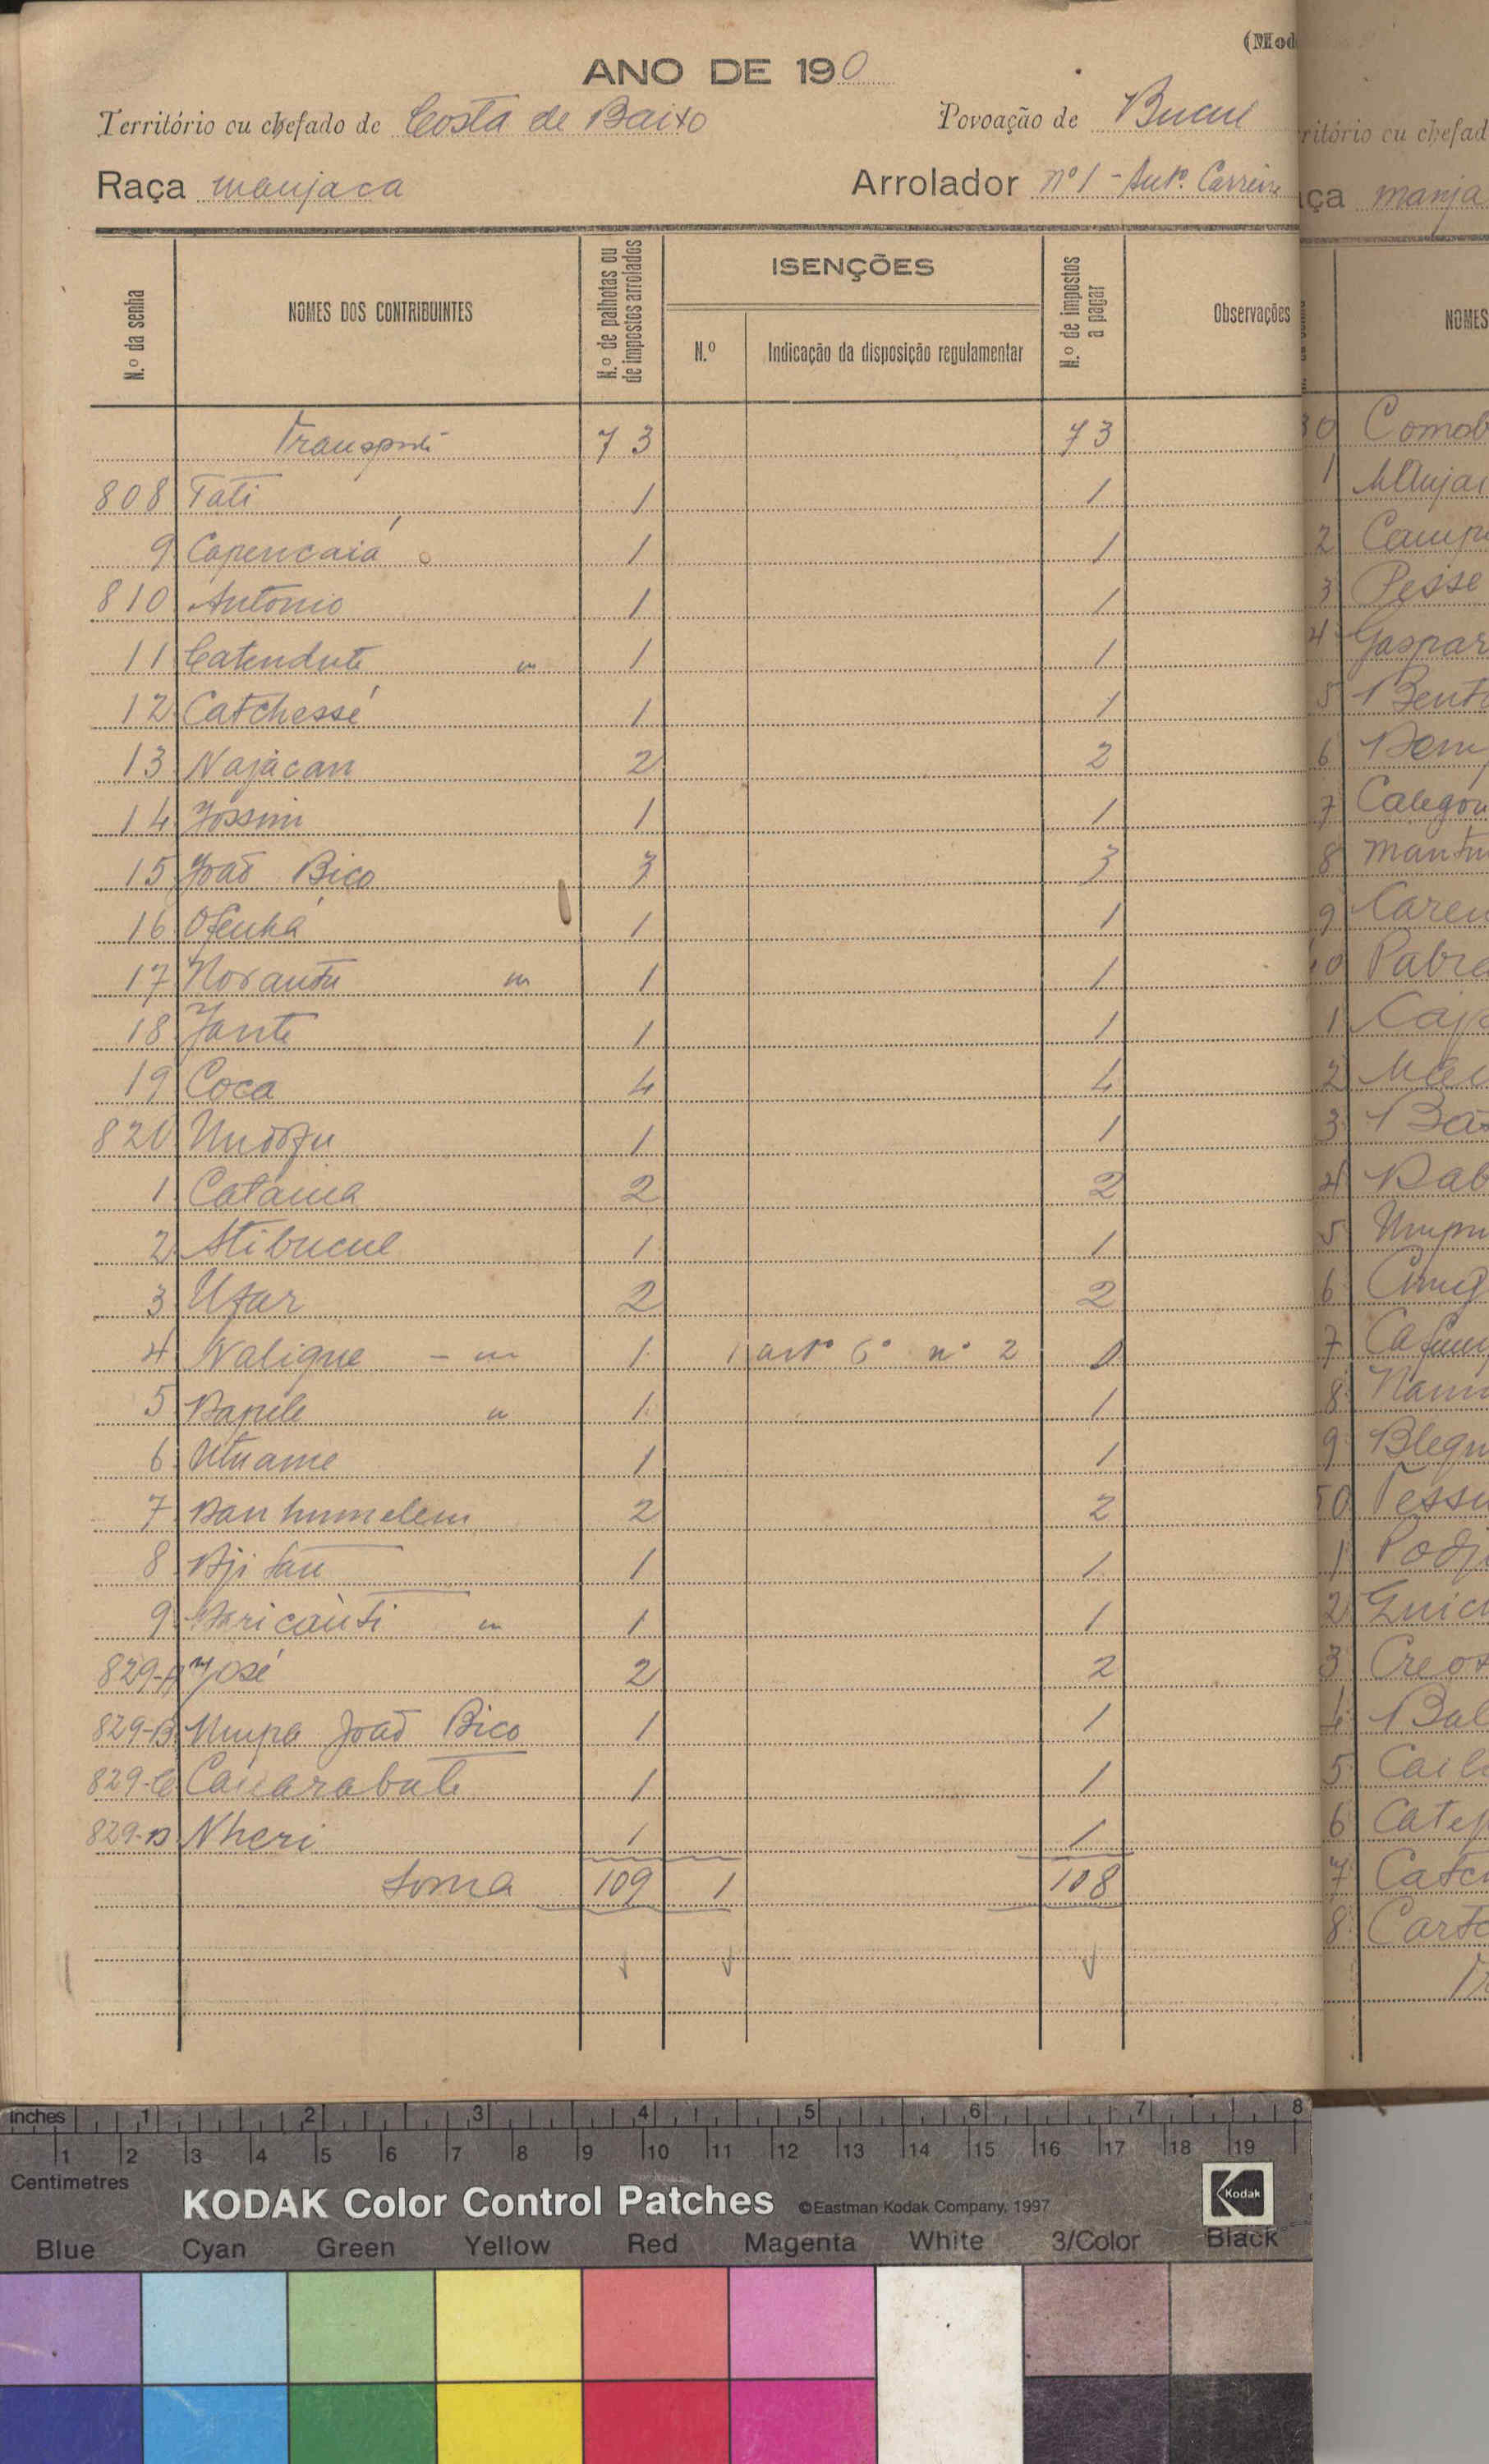 (Mod
ANO DE 190
Território ou chefado de Costa de Baixo Povoação de Bucul
Raça manjaca Arrolador nº 1 - Antº. Carreira
N.º da senha NOMES DOS CONTRIBUINTES N.º de palhotas ou de impostos arrolados ISENÇÕES N.º Indicação da disposição regulamentar N.º de impostos a pagar Observações
Transporte 73 73
808 Tati 1 1
9 Capencaiá 1 1
810 António 1 1
11 Catendute m 1 1
12 Catchessé 1 1
13 Najácan 2 2
14 Jossim 1 1
15 João Bico 3 3
16 Ofenhá 1 1
17 Norantu m 1 1
18 Jante 1 1
19 Coca 4 4
820 1 1
1 Catama 2 2
2 Atibucul 1 1
3 Ufar 2 2
4 Naligue - m 1 1 artº 6º nº 2 0
5 Bapile m 1 1
6 Utuame 1 1
7 Banhumelem 2 2
8 1 1
9 m 1 1
829-A José 2 2
829-B Umpa João Bico 1 1
829-C Canarabate 1 1
829-D Nheri 1 1
Soma 109 1 108
ritório ou chefad
ça manja
NOMES
30 Comob
1
2 Camp
3 Pesse
4 Gaspar
5 Bent
6 Dem
7 Calegou
8 mantu
9 Caren
40 Pabra
1 Cap
2
3 Bas
4 Dab
5 Umpu
6
7
8 Nam
9 Blequ
50 Tessu
1 Podj
2
3 Creot
4 Bal
5 Cail
6 Catep
7 Catc
8 Cart
inches 1 2 3 4 5 6 7 8
1 2 3 4 5 6 7 8 9 10 11 12 13 14 15 16 17 18 19
Centimetres
KODAK Color Control Patches ©Eastman Kodak Company, 1997 Kodak
Blue Cyan Green Yellow Red Magenta White 3/Color Black